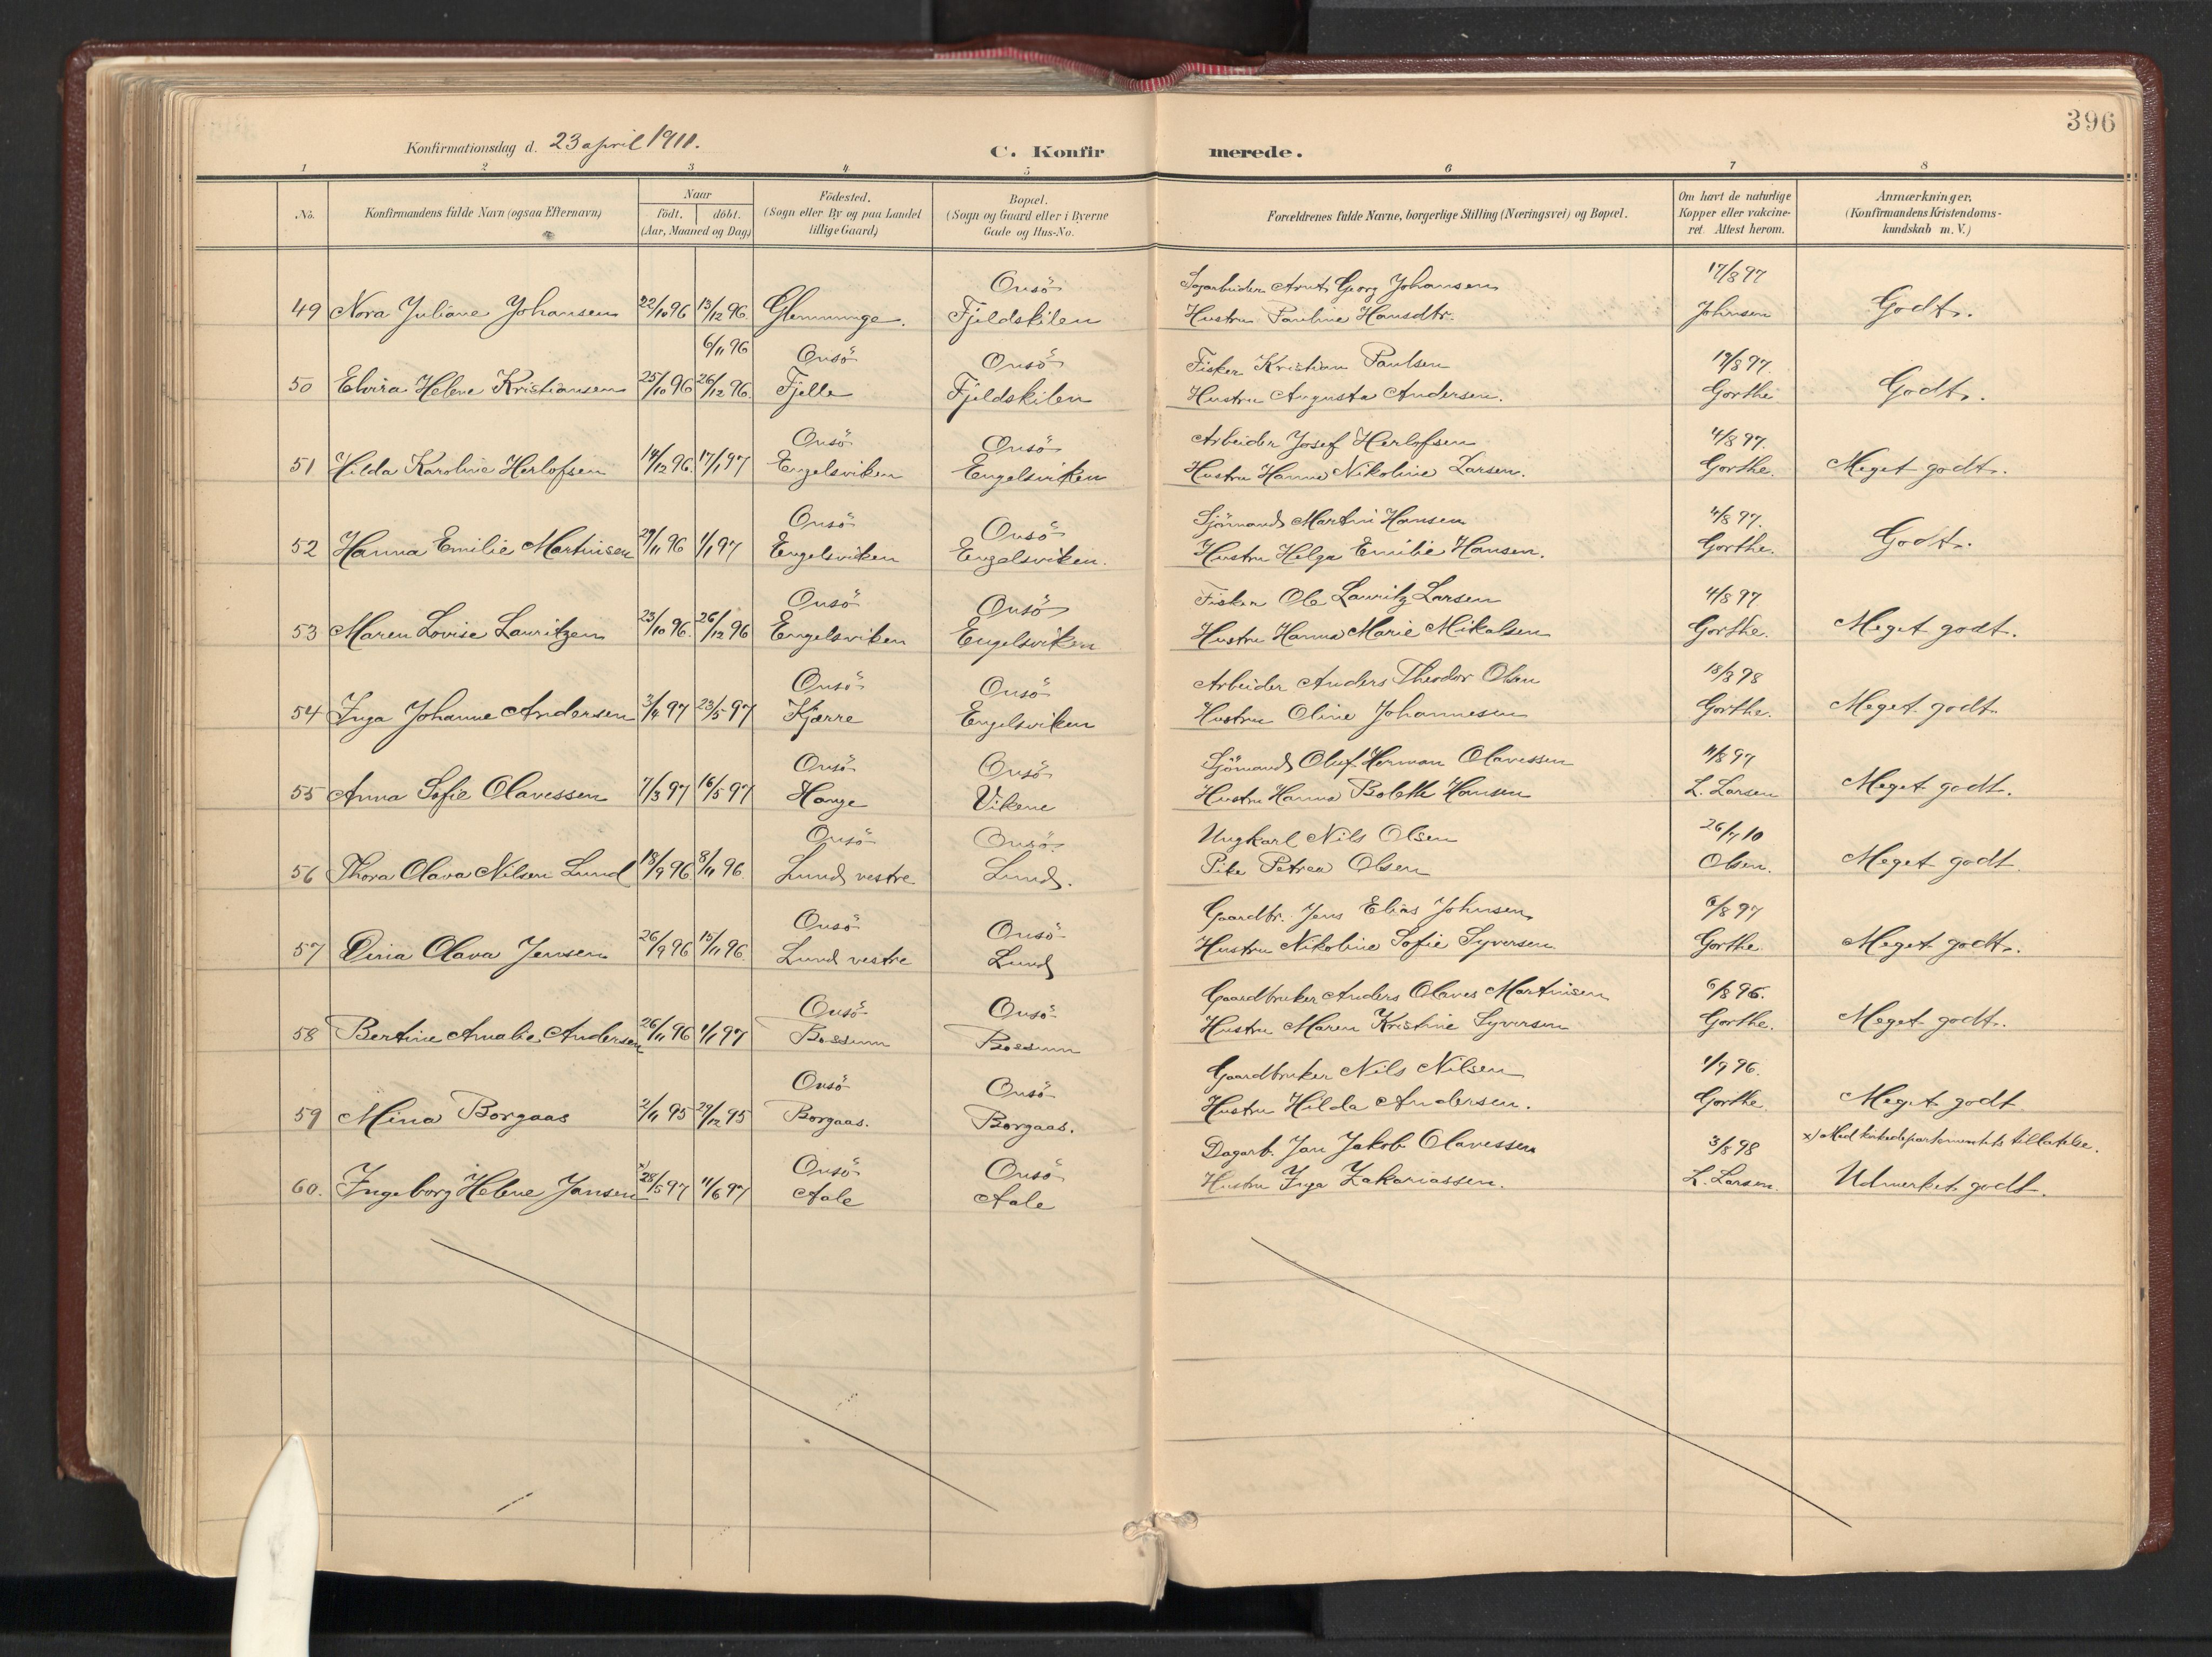 396
Konfirmationsdag d. 23 april 1911.
C. Konfirmerede.
1 2 3 4 5 6 7 8
No.
Konfirmandens fulde Navn (ogsaa Efternavn)
Naar
födt. döbt.
(Aar, Maaned og Dag)
Födested.
(Sogn eller By og paa Landet
tillige Gaard)
Bopæl.
(Sogn og Gaard eller i Byerne
Gade og Hus-No.
Forældrenes fulde Navne, borgerlige Stilling (Næringsvei) og Bopæl.
Om havt de naturlige
Kopper eller vakcine-
ret. Attest herom.
Anmærkninger.
(Konfirmandens Kristendoms-
kundskab m. V.)
Onsö Sagarbeider Arnt Georg Johansen 17/8 97
49 Nora Juliane Johansen 22/10 96 13/12 96. Glemminge. Fjeldskilen Hustru Pauline Hansdtr. Johnsen Godt.
6/11 96 Onsö Onsö Fisker Kristian Paulsen 19/8 97.
50 Elvira Helene Kristiansen 25/10 96 26/12 96. Fjelle Fjeldskilen Hustru Augusta Andersen. Gorthe Godt.
Onsö Onsö Arbeider Josef Herlofsen 4/8 97.
51. Hilda Karoline Herlofsen 14/12 96. 17/1 97 Engelsviken Engelsviken Hustru Hanna Nikoline Larsen. Gorthe. Meget godt.
Onsö Onsö Sjömand Martin Hansen 4/8 97.
52 Hanna Emilie Martinsen 29/11 96 1/1 97 Engelsviken Engelsviken. Hustru Helga Emilie Hansen. Gorthe. Godt.
Onsö Onsö Fisker Ole Lauritz Larsen 4/8 97
53 Maren Lovise Lauritzen 23/10 96. 26/12 96 Engelsviken Engelsviken Hustru Hanna Marie Mikalsen Gorthe. Meget godt.
Onsö Onsö Arbeider Anders Theodor Olsen 18/8 98
54 Inga Johanne Andersen 3/4 97 23/5 97 Kjærre Engelsviken Hustru Oline Johannesen Gorthe. Meget godt.
Onsö Onsö Sjömand Oluf Herman Olavessen 11/8 97
55 Anna Sofie Olavessen 7/3 97 16/5 97 Hauge Vikene Hustru Hanna Bolette Hansen L. Larsen Meget godt.
Onsö Onsö. Ungkarl Nils Olsen 26/7 10
56 Thora Olava Nilsen Lund 18/9 96 8/11 96. Lund vestre Lund. Pike Petrea Olsen Olsen. Meget godt.
Onsö Onsö Gaardbr. Jens Elias Johnsen 6/8 97
57 Diria Olava Jensen 26/9 96 15/11 96. Lund vestre Lund Hustru Nikoline Sofie Syversen Gorthe. Meget godt.
Onsö Onsö Gaardbruker Anders Olaves Martinsen 6/8 96.
58 Bertine Amalie Andersen 26/11 96 1/1 97 Bossum Bossum Hustru Maren Kristine Syversen Gorthe. Meget godt.
Onsö Onsö Gaardbruker Nils Nilsen 1/9 96.
59 Mina Borgaas 2/11 95 29/12 95 Borgaas. Borgaas. Hustru Hilda Andersen. Gorthe. Meget godt
Onsö Onsö Dagarb. Jan Jakob Olavessen 3/8 98 x) Med kirkedepartementets tillatelse.
60. Ingeborg Helene Jansen x) 28/5 97 11/6 97 Aale Aale Hustru Inga Zakariassen. L. Larsen. Udmerket godt.